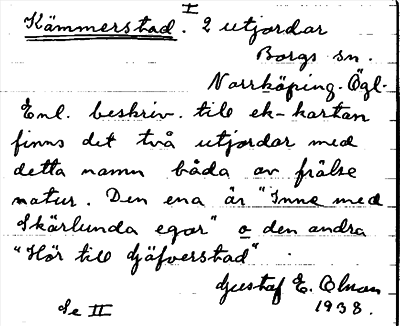 I
Kämmerstad. 2 utjordar
Borgs sn.
Norrköping. Ögl.
Enl. beskriv. till ek-kartan
finns det två utjordar med
detta namn båda av frälse
natur. Den ena är "Inne med
Skärlunda egor" o den andra
"Hör till Gjäfverstad".
Gustaf E. Olsson
1938.
Se II